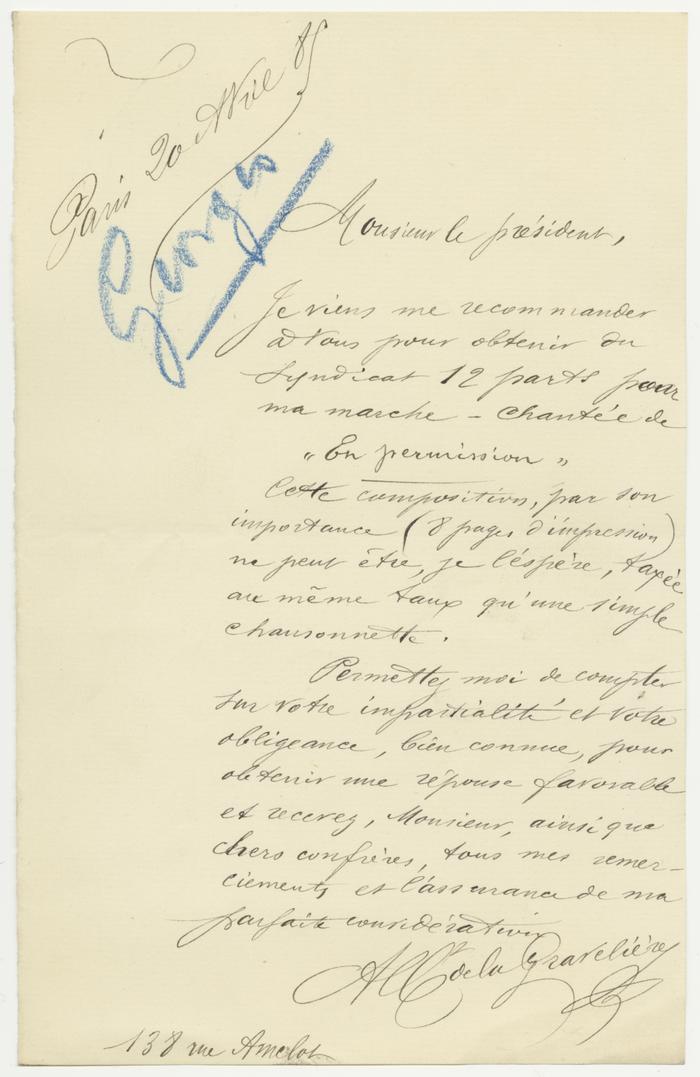 Paris 20 Avril 85
Monsieur le président,
Je viens me recommander
à Vous pour obtenir du
Syndicat 12 parts pour
ma marche - chantée de
"En permission"
Cette composition, par son
importance (8 pages d'impression)
ne peut être, je l'éspère, taxée
au même taux qu'une simple
chansonnette.
Permettez moi de compter
sur votre impartialité et votre
obligeance, bien connue, pour
obtenir une réponse favorable
et recevez, Monsieur, ainsi que
chers confrères, tous mes remer-
ciements et l'assurance de ma
parfaite considération
de la Gravelière
138 rue Amelot